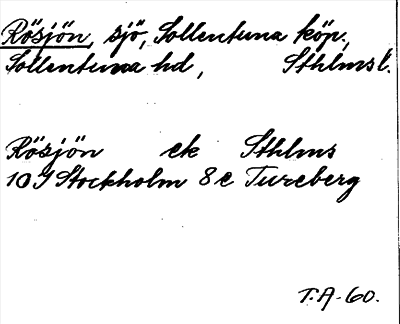 Rösjön, sjö, Sollentuna köp.,
Sollentuna hd, Sthlmsl.
Rösjön ek Sthlms
10I Stockholm 8e Tureberg
T.A-60.